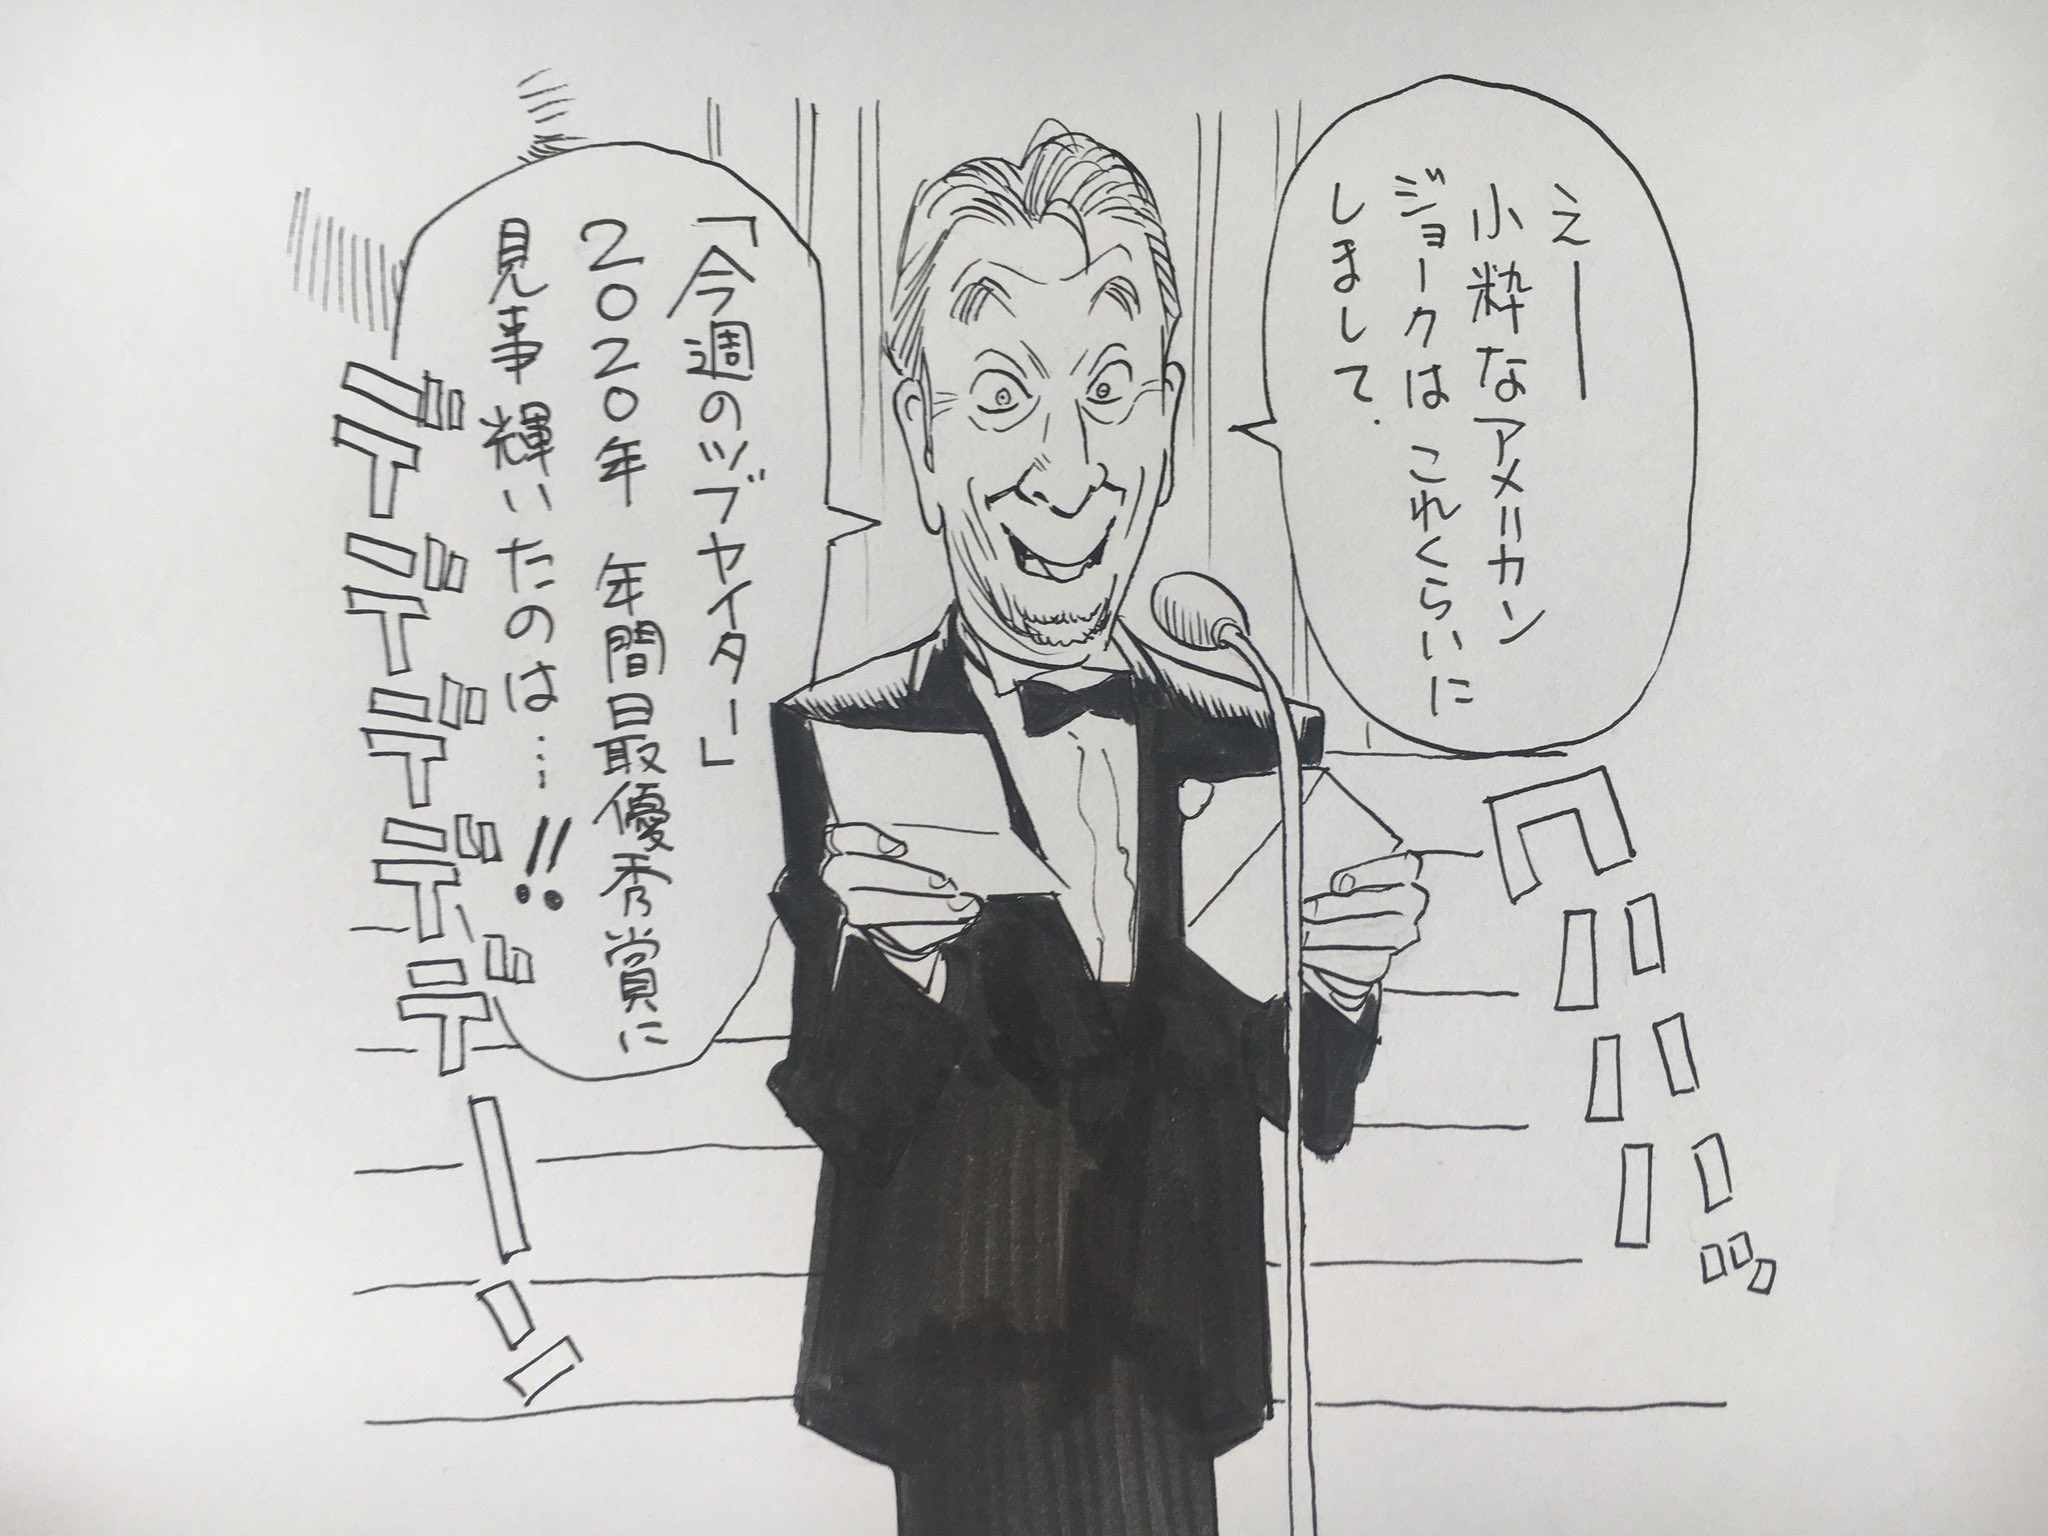 えー
小粋なアメリカン
ジョークは これくらいに
しまして.
ワハハハッ
「今週のツブヤイター」
2020年 年間最優秀賞に
見事 輝いたのは…!!
デデデデデーン